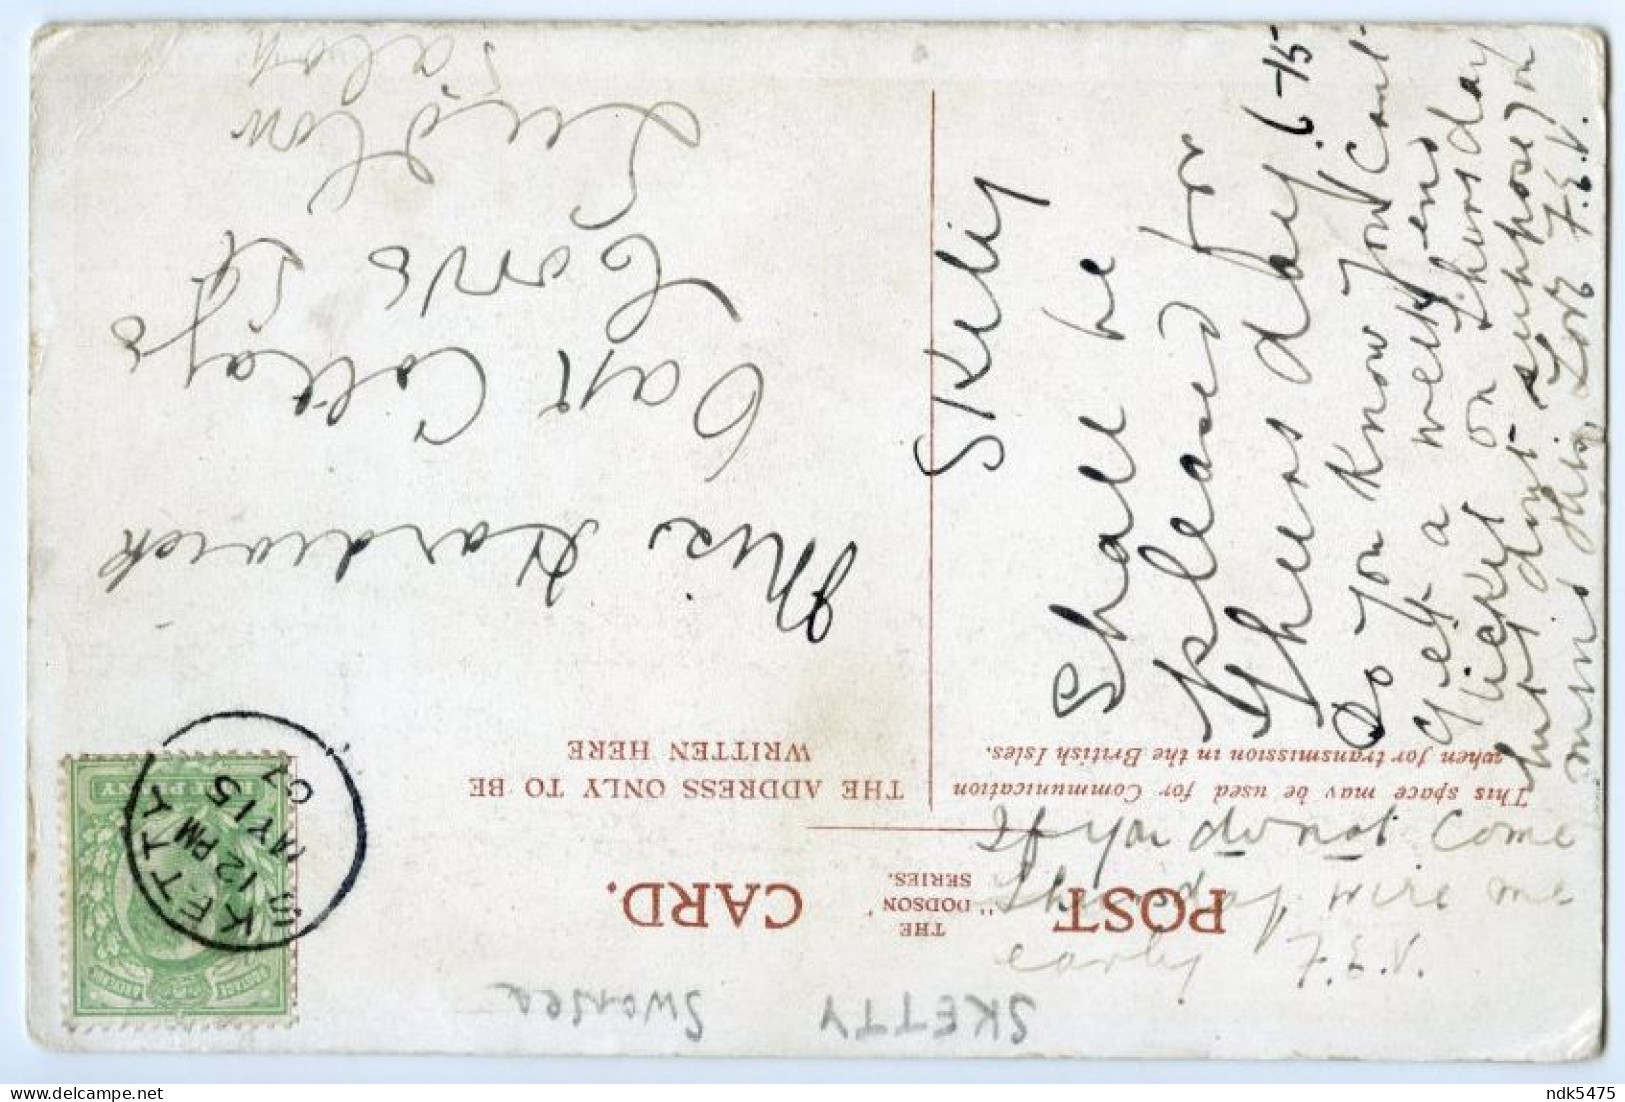 POST CARD.
THE
"DODSON"
SERIES.
This space may be used for Communication
when for transmission in the British Isles.
THE ADDRESS ONLY TO BE
WRITTEN HERE
HALF PENNY
POSTAGE
12 PM
MY 15
07
SKETTY
Swansea
Miss Hardwick
Cottage
Corve St
Ludlow
Salop
Skety
Shall be
pleased for
Thurs day 6-15
Do you Know you Cant
get a week end
Ticket on Thursday
but dont suppose you
mind this,
F.E.V.
If you do not come
Thursday wire me
early F.E.V.
ndk5475